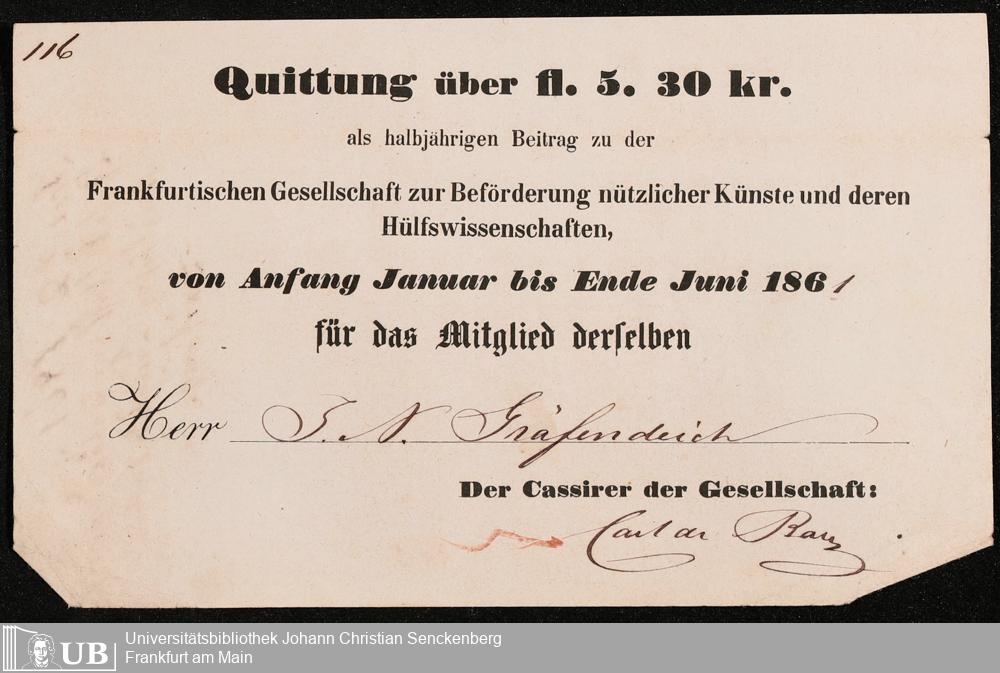 116
Quittung über fl. 5. 30 kr.
als halbjährigen Beitrag zu der
Frankfurtischen Gesellschaft zur Beförderung nützlicher Künste und deren
Hülfswissenschaften,
von Anfang Januar bis Ende Juni 1861
für das Mitglied derselben
Herr J. N. Gräfendeich
Der Cassirer der Gesellschaft:
Carl de
UB Universitätsbibliothek Johann Christian Senckenberg
Frankfurt am Main